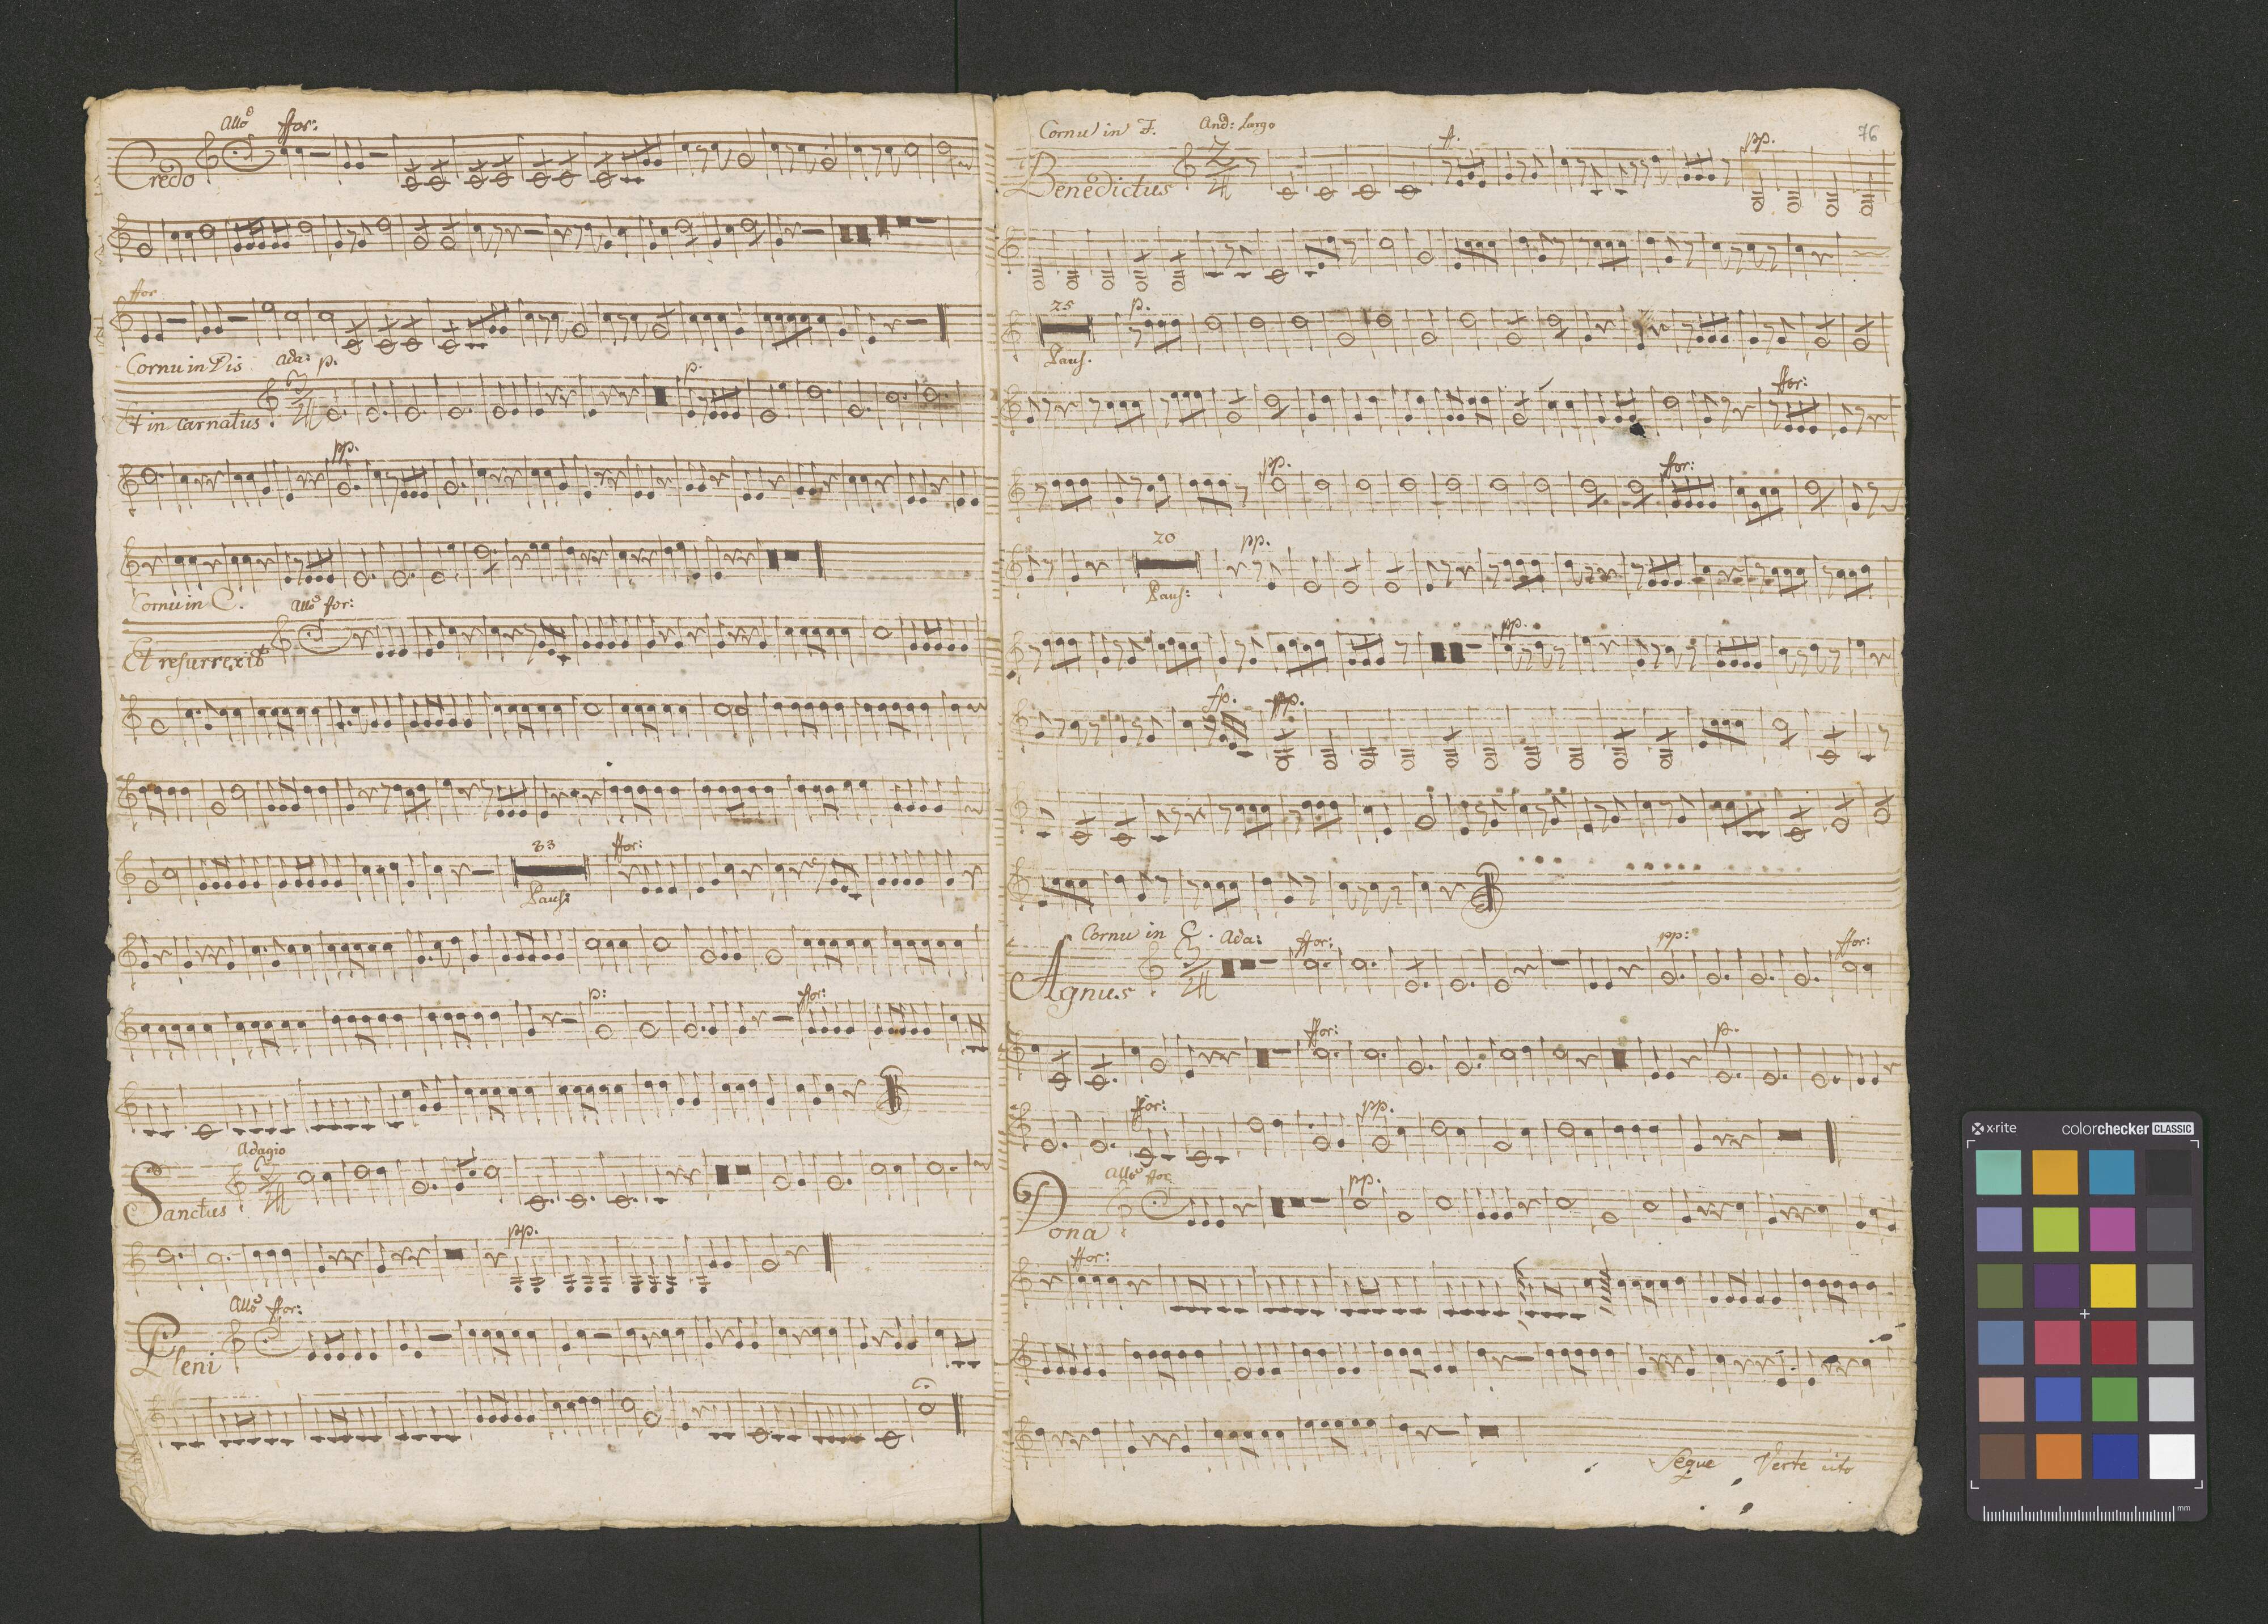 Allo ffor:
Credo
ffor
Cornu in Dis Ada: p.
p.
Et in carnatus
pp.
Cornu in C. Allo for:
Et resurrexit
83
ffor:
Paus:
p: ffor:
Adagio
3/4
Sanctus
pp.
Allo ffor:
Pleni
76
Cornu in F. And: Largo
f. pp.
2/4
Benedictus
25 p.
Paus.
ffor:
pp. for:
20 pp.
Paus:
pp.
fp. pp.
Cornu in C. Ada: ffor: pp: ffor:
3/4
Agnus
ffor: p.
for: pp.
Allo for
pp.
Dona
ffor:
Seque Verte cito
x-rite colorchecker CLASSIC
mm